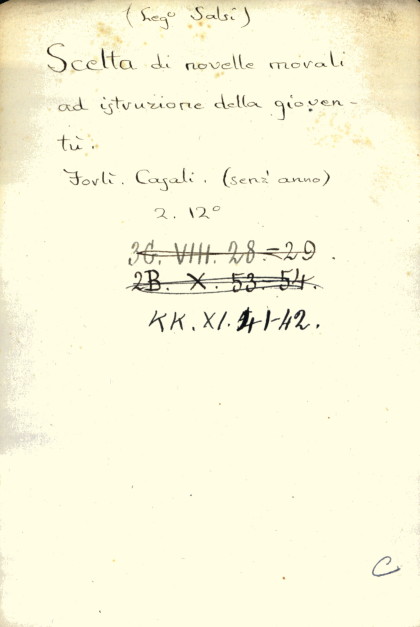 (Lego Salsi)
Scelta di novelle morali
ad istruzione della gioven-
tù.
Forlì. Casali. (senz'anno)
2. 12°
3C. VIII. 28=29.
2B. X. 53=54.
KK. XI. 41-42.
C